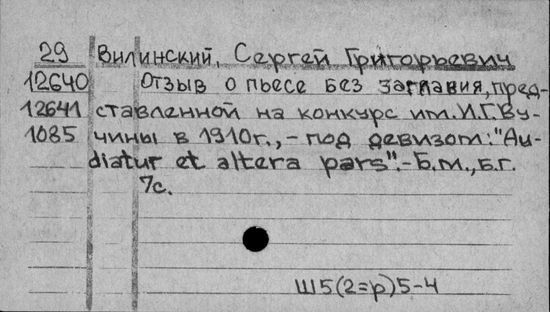 29 Вилинский, Сергей Григорьевич
12640 Отзыв о пьесе без заглавия, пред-
12641 ставленной на конкурс им. И.Г. Ву-
1085 чины в 1910г., - под девизом: "Au-
diatur et altera pars". - Б.м., б.г.
7с.
Ш5(2=р)5-4